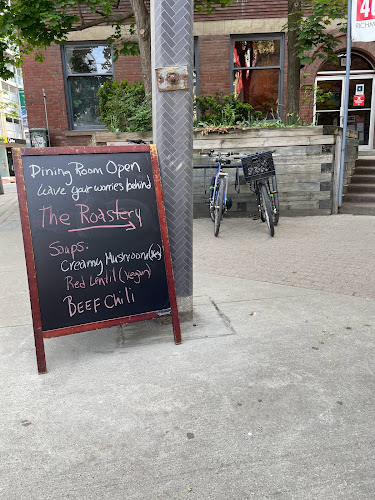 Dining Room Open
Leave your worries behind
The Roastery
Soups:
Creamy Mushroom (Veg)
Red Lentil (Vegan)
BEEF Chili
RICHMOND